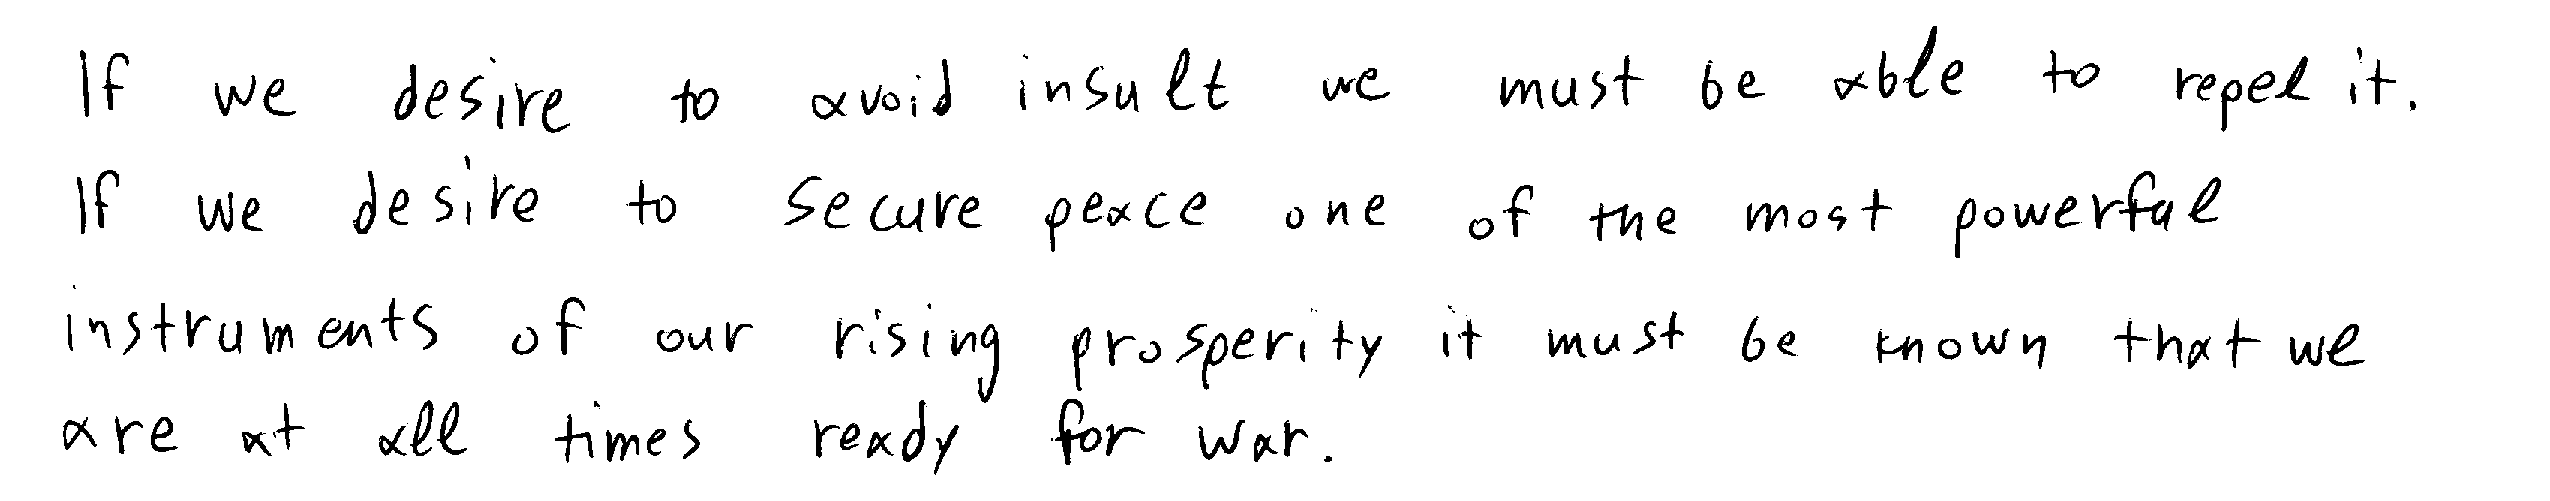 If we desire to avoid insult we must be able to repel it.
If we desire to secure peace one of the most powerful
instruments of our rising prosperity it must be known that we
are at all times ready for war.